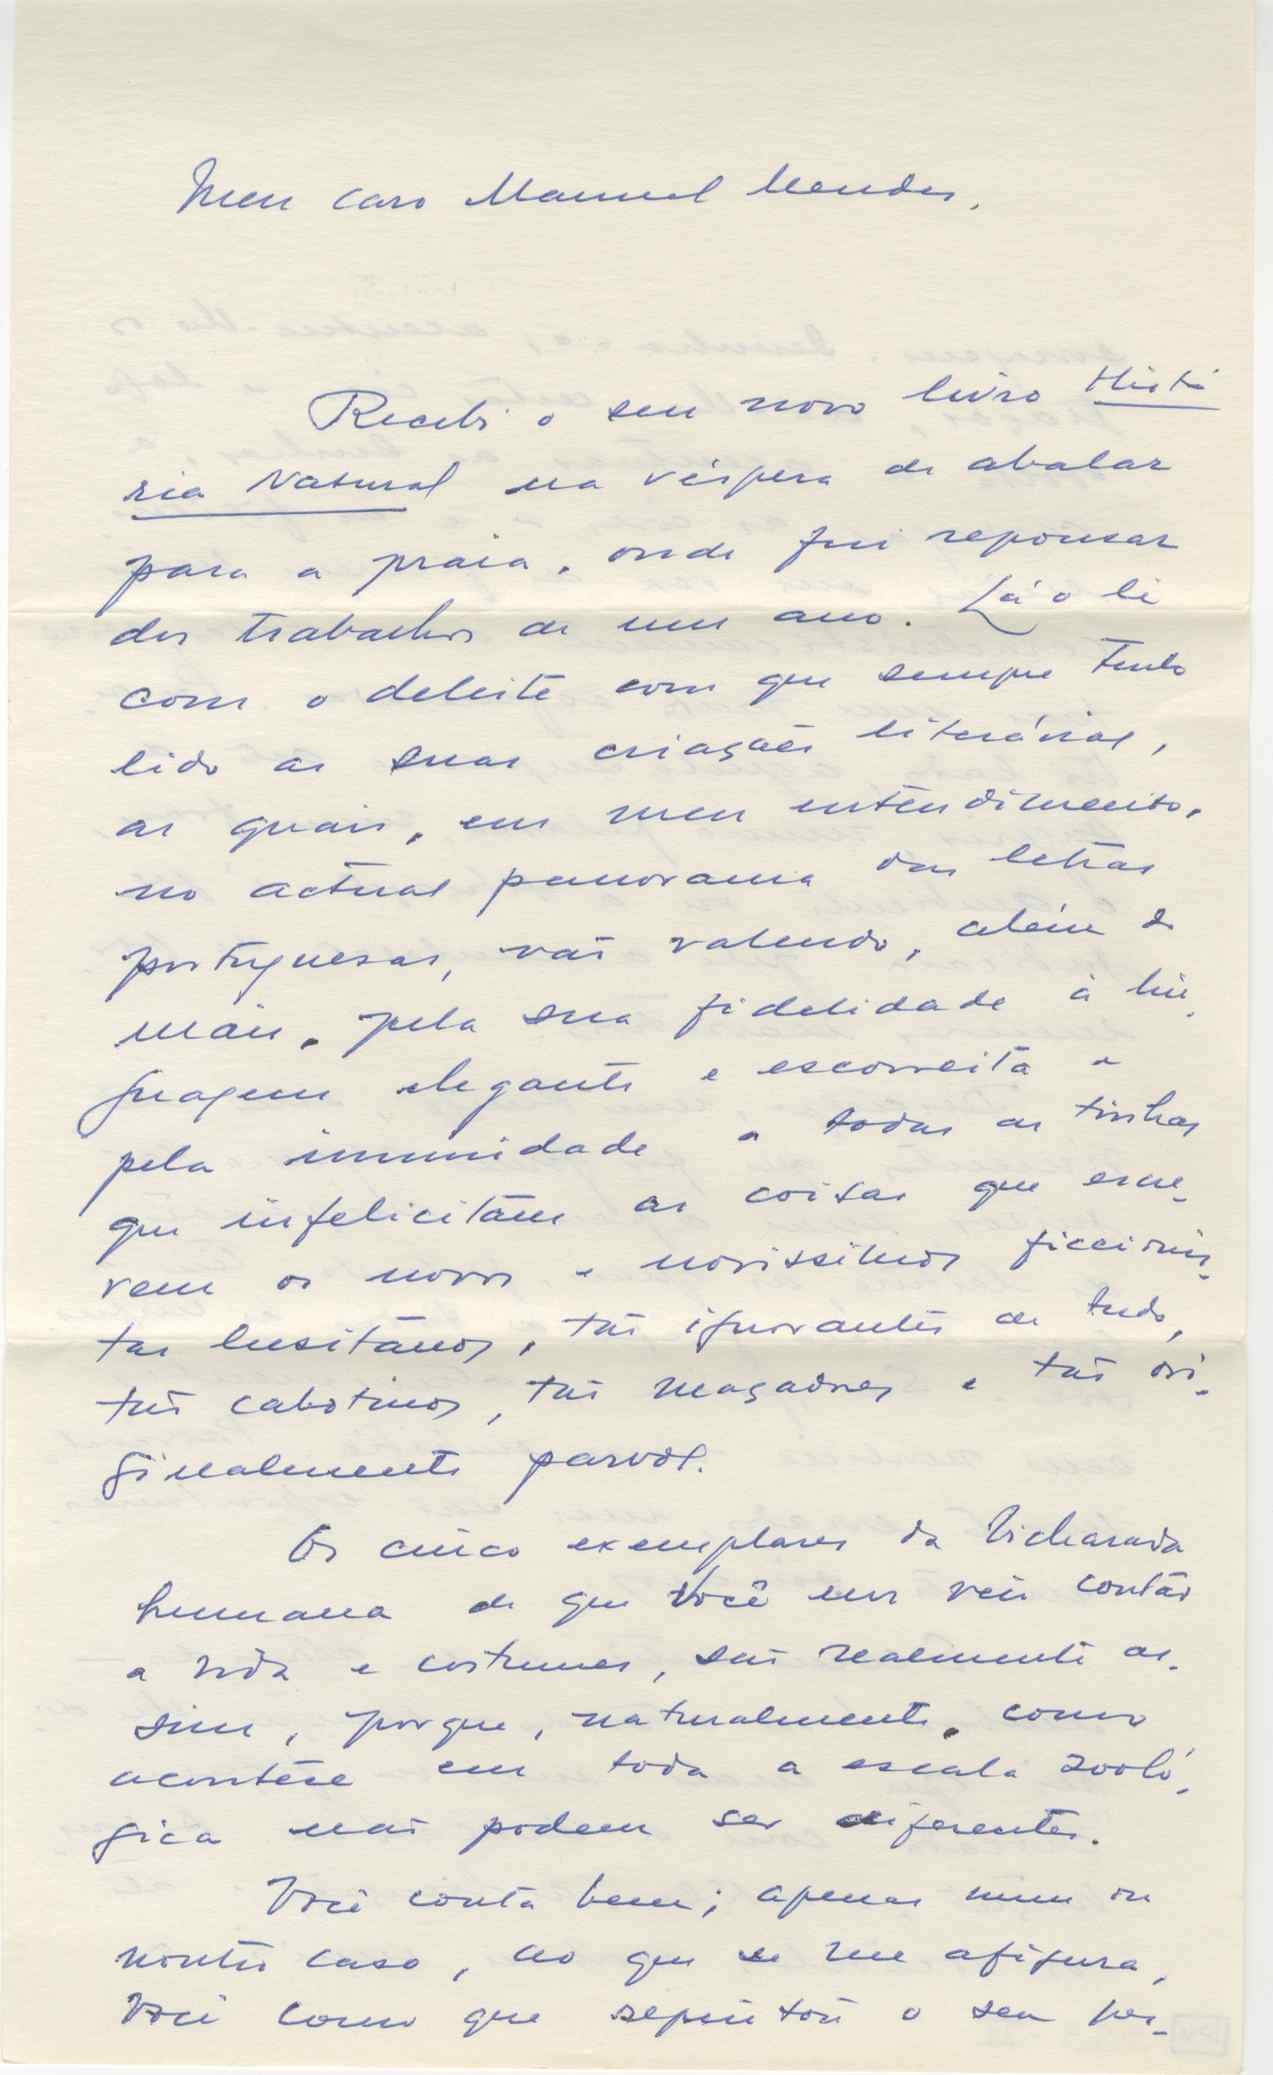 Meu caro Manuel Mendes,
Recebi o seu novo livro Histó
ria Natural na véspera de abalar
para a praia, onde fui repousar
dos trabalhos de um ano. Lá o li
com o deleite com que sempre tenho
lido as suas criações literárias,
as quais, em meu entendimento,
no actual panorama das letras
portuguesas, vão valendo, além do
mais, pela sua fidelidade à lin-
guagem elegante e escorreita e
pela imunidade a todas as tinhas
que infelicitam as coisas que escre-
vem os novos e novíssimos ficcionis-
tas lusitanos, tão ignorantes de tudo,
tão cabotinos, tão maçadores e tão ori-
ginalmente parvos.
Os cinco exemplares da bicharada
humana de que Você nos vem contar
a vida e costumes, são realmente as-
sim, porque, naturalmente, como
acontece em toda a escala zooló-
gica não podem ser diferentes.
Você conta bem; apenas num ou
noutro caso, ao que se me afigura,
Você como que repintou o seu per-